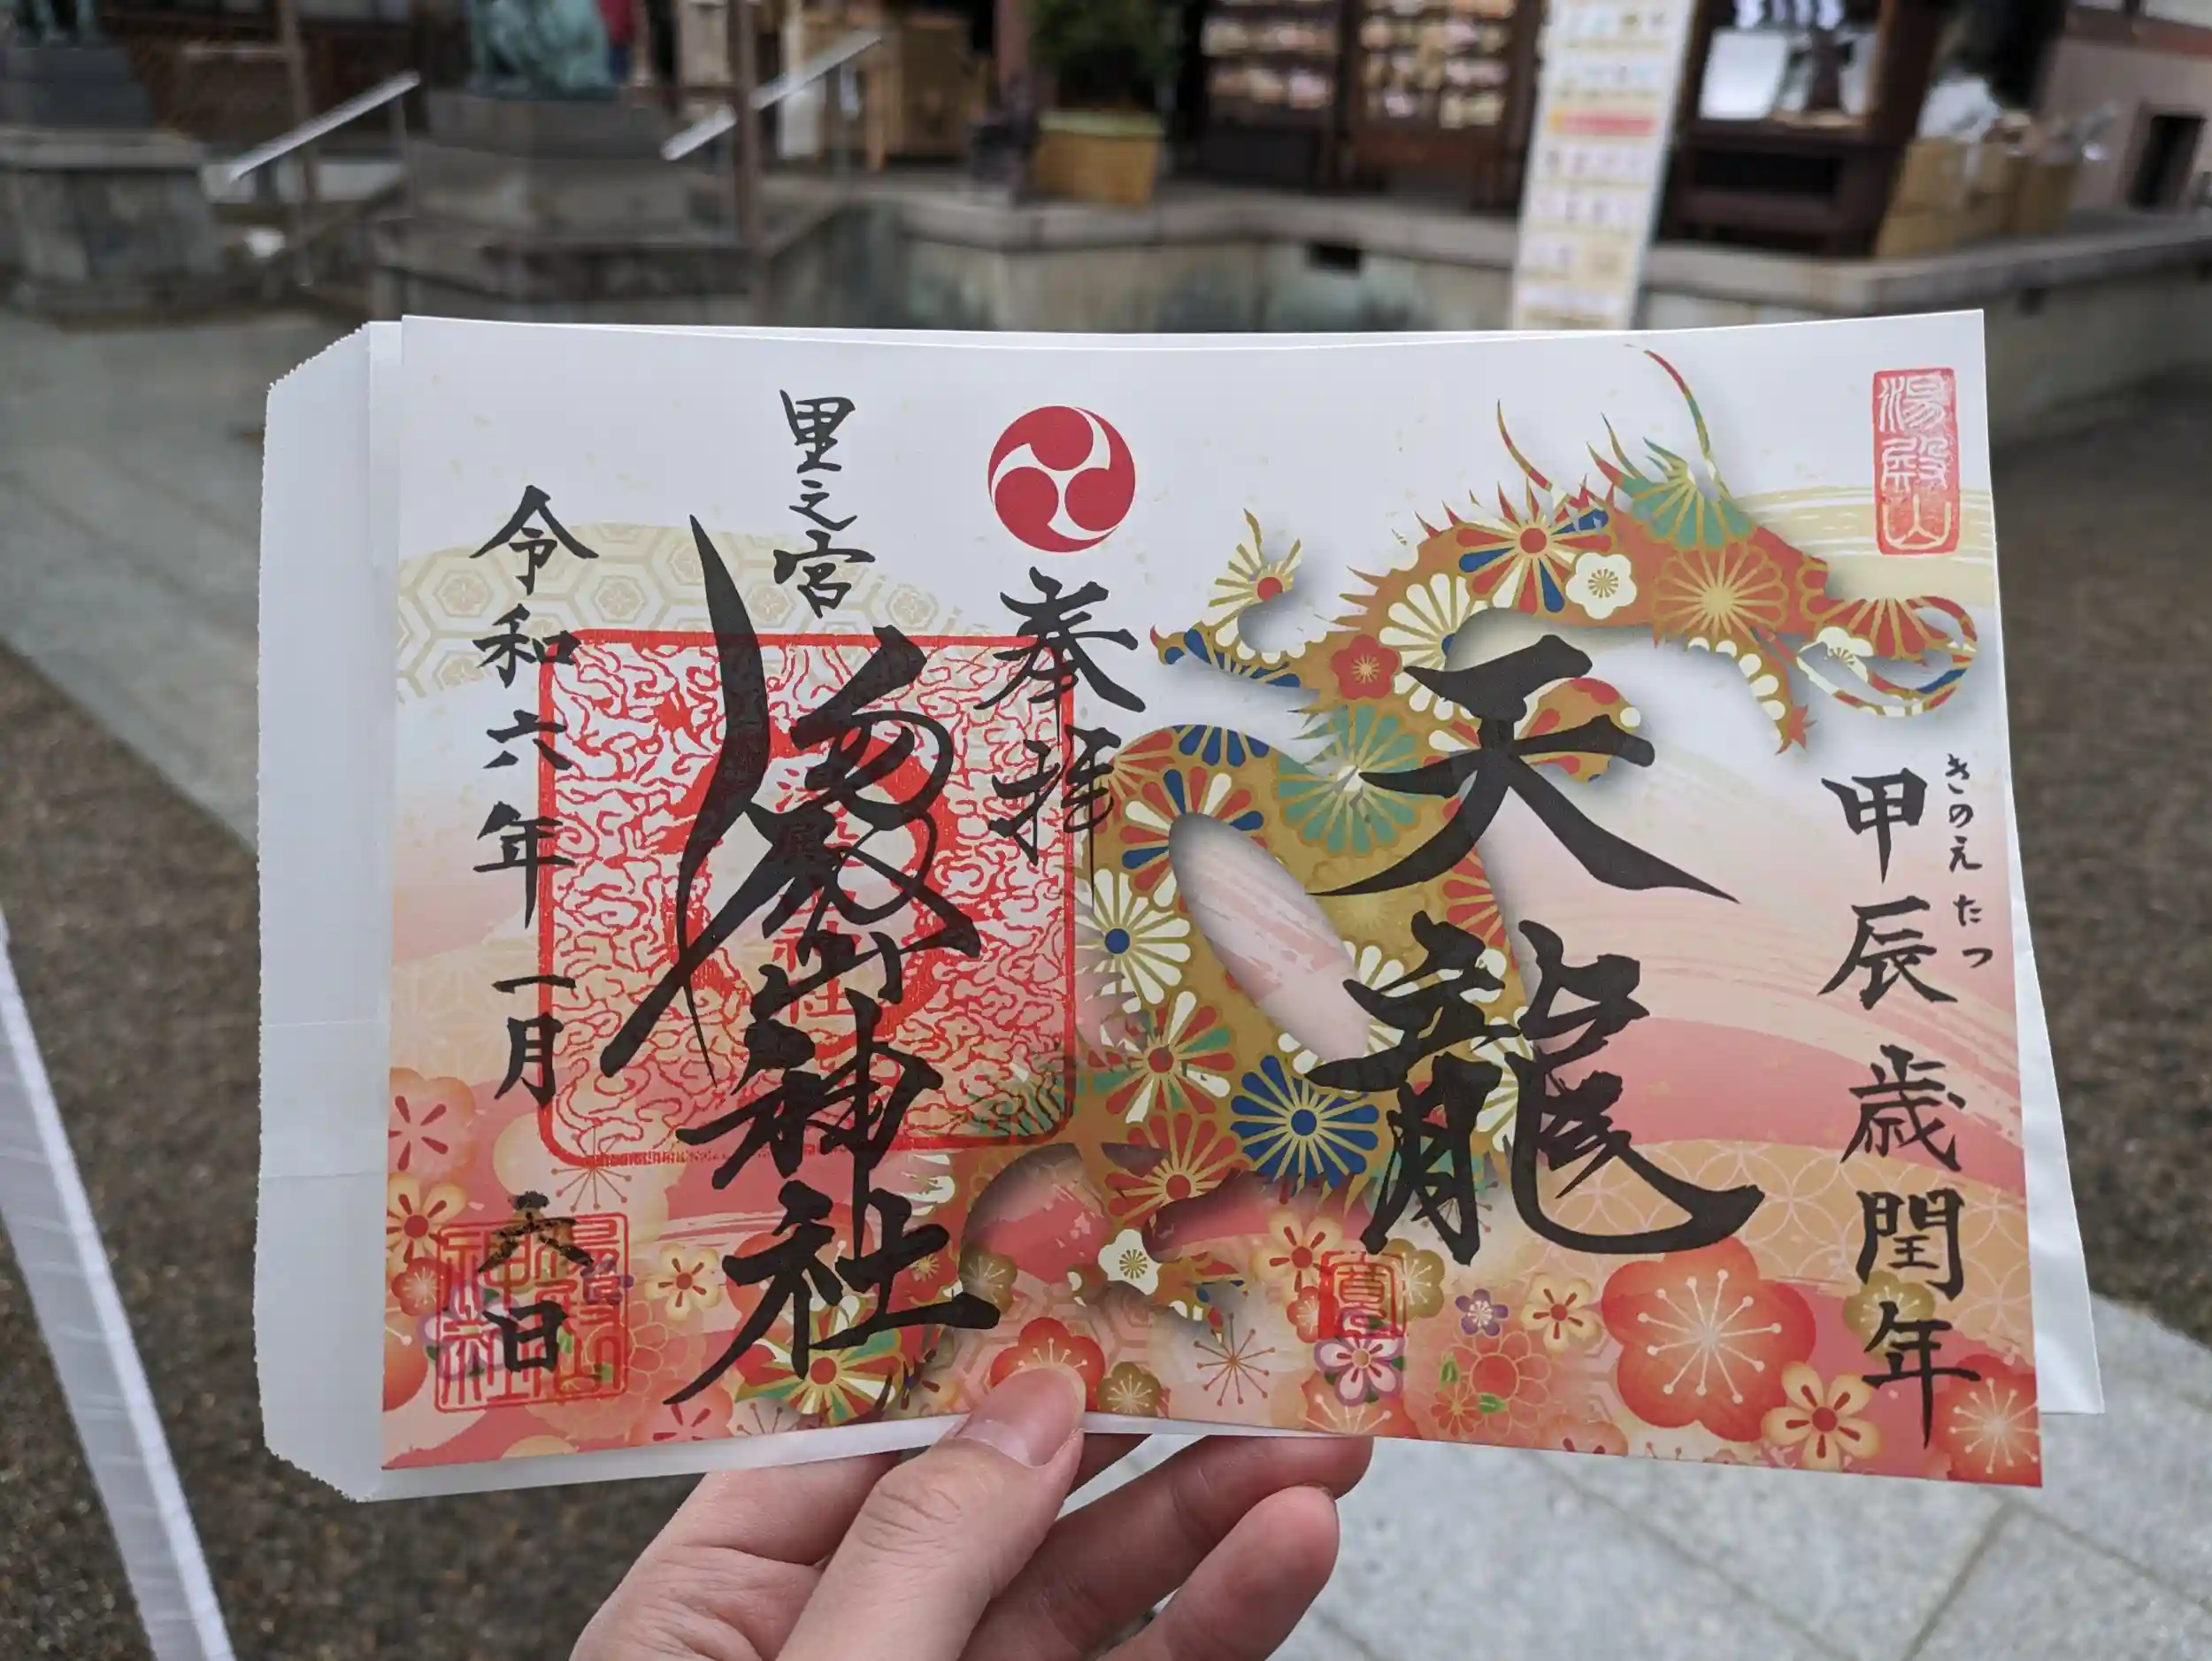 湯殿山
きのえたつ
甲辰歳閏年
天龍
奉拝
里之宮
湯殿山神社
令和六年一月六日
湯殿山神社